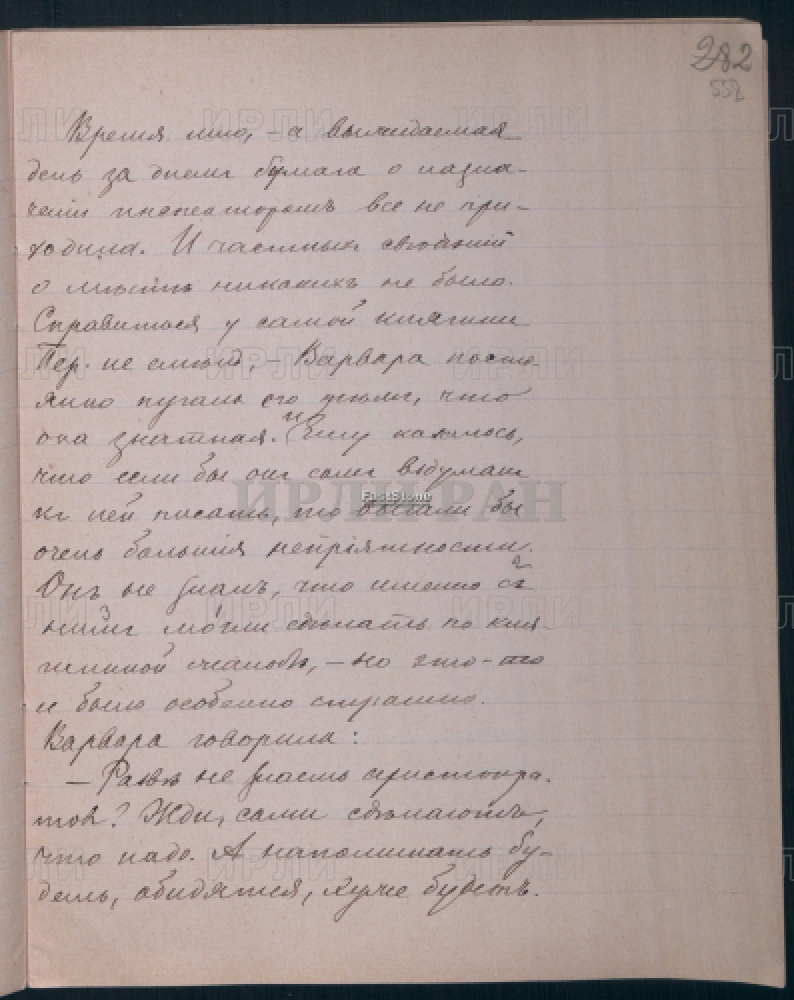 282
552
Время шло, – а выжидаемая
день за днемъ бумага о назна-
ченіи инспекторомъ все не при-
ходила. И частныхъ свѣдѣній
о мѣстѣ никакихъ не было.
Справиться у самой княгини
Пер. не смѣлъ, – Варвара постоя
янно пугала его тѣмъ, что
она знатная. И ему казалось,
что если бы онъ самъ вздумалъ
къ ней писать, то вышли бы
очень большія непріятности.
Онъ не зналъ, что именно съ 2
нимъ 3 могли сдѣлать по кня-
гининой жалобѣ, – но это-то
и было особенно страшно.
Варвара говорила:
– Развѣ не знаешь аристокра-
товъ? Жди, сами сдѣлаютъ,
что надо. А напоминать бу-
дешь, обидятся, хуже будетъ.
ИРЛИ РАН